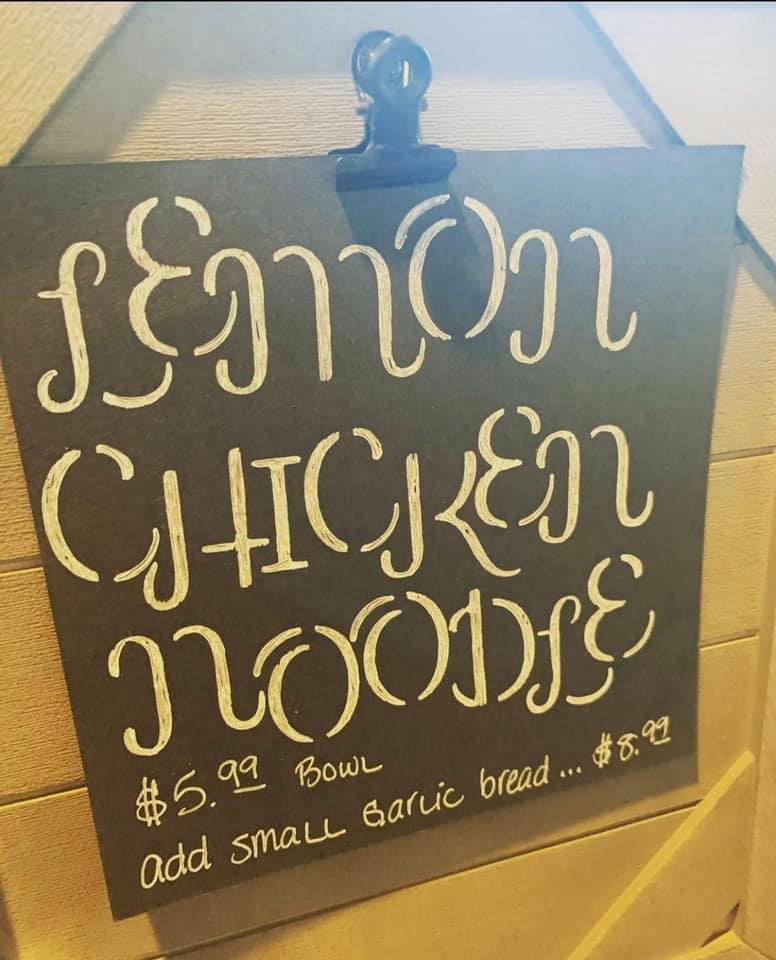 LEMON
CHICKEN
NOODLE
$5.99 BOWL
add SMALL GARLIC bread... $8.99